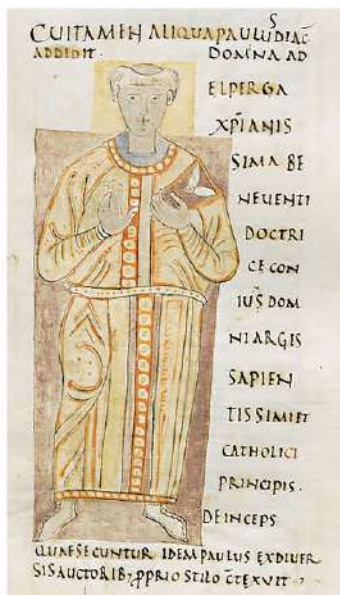 CUI TAMEN ALIQUA PAULUS DIAC̄
ADDIDIT. DOMNA AD
ELPERGA
XP̄IANIS
SIMA BE
NEUENTI
DOCTRI
CE CON
IUS̄ DOM
NI ARGIS
SAPIEN
TISSIMI ET
CATHOLICI
PRINCIPIS.
DEINCEPS
QUAE SECUNTUR IDEM PAULUS EX DIUER
SIS AUCTORIB; PROPRIO STILO CTEXUIT